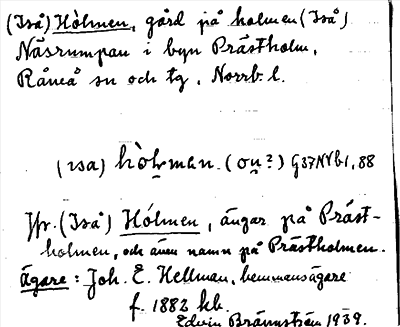 (Iså) Hólmen, gård på holmen (Iså)
Näsrumpan i byn Prästholm,
Råneå sn och tg, Norrb. l.
(ɪsa) hòlman. (on?) G37NVb1, 88
Jfr. (Iså) Hólmen, ängar på Präst-
holmen, och även namn på Prästholmen.
Ägare: Joh. E. Hellman, hemmansägare
f. 1882 kb.
Edvin Brännström 1939.